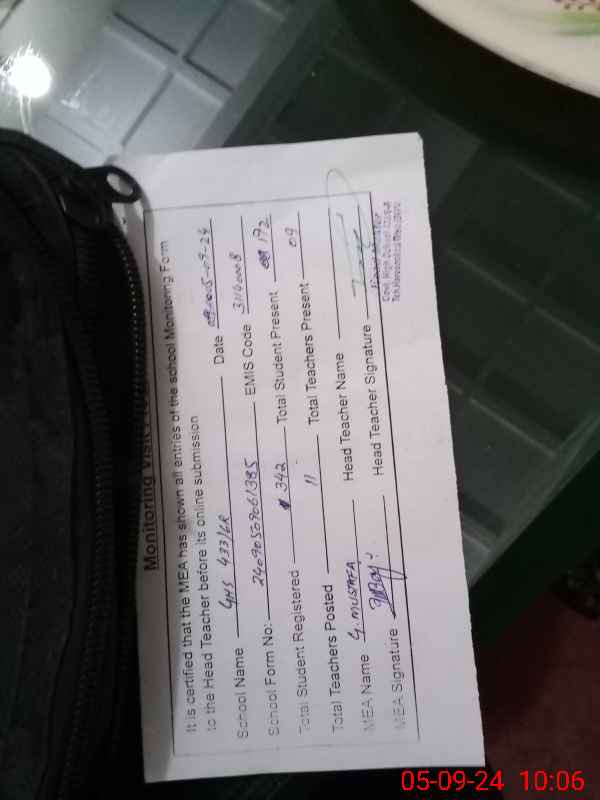 Monitoring Visit
It is certified that the MEA has shown all entries of the school Monitoring Form
to the Head Teacher before its online submission
School Name GHS 433/6R Date 05-09-24
School Form No: 24090569061385 EMIS Code 31140008
Total Student Registered 342 Total Student Present 172
Total Teachers Posted 11 Total Teachers Present 09
MEA Name G. MUSTAFA Head Teacher Name
MEA Signature Head Teacher Signature
Govt. High School
05-09-24 10:06